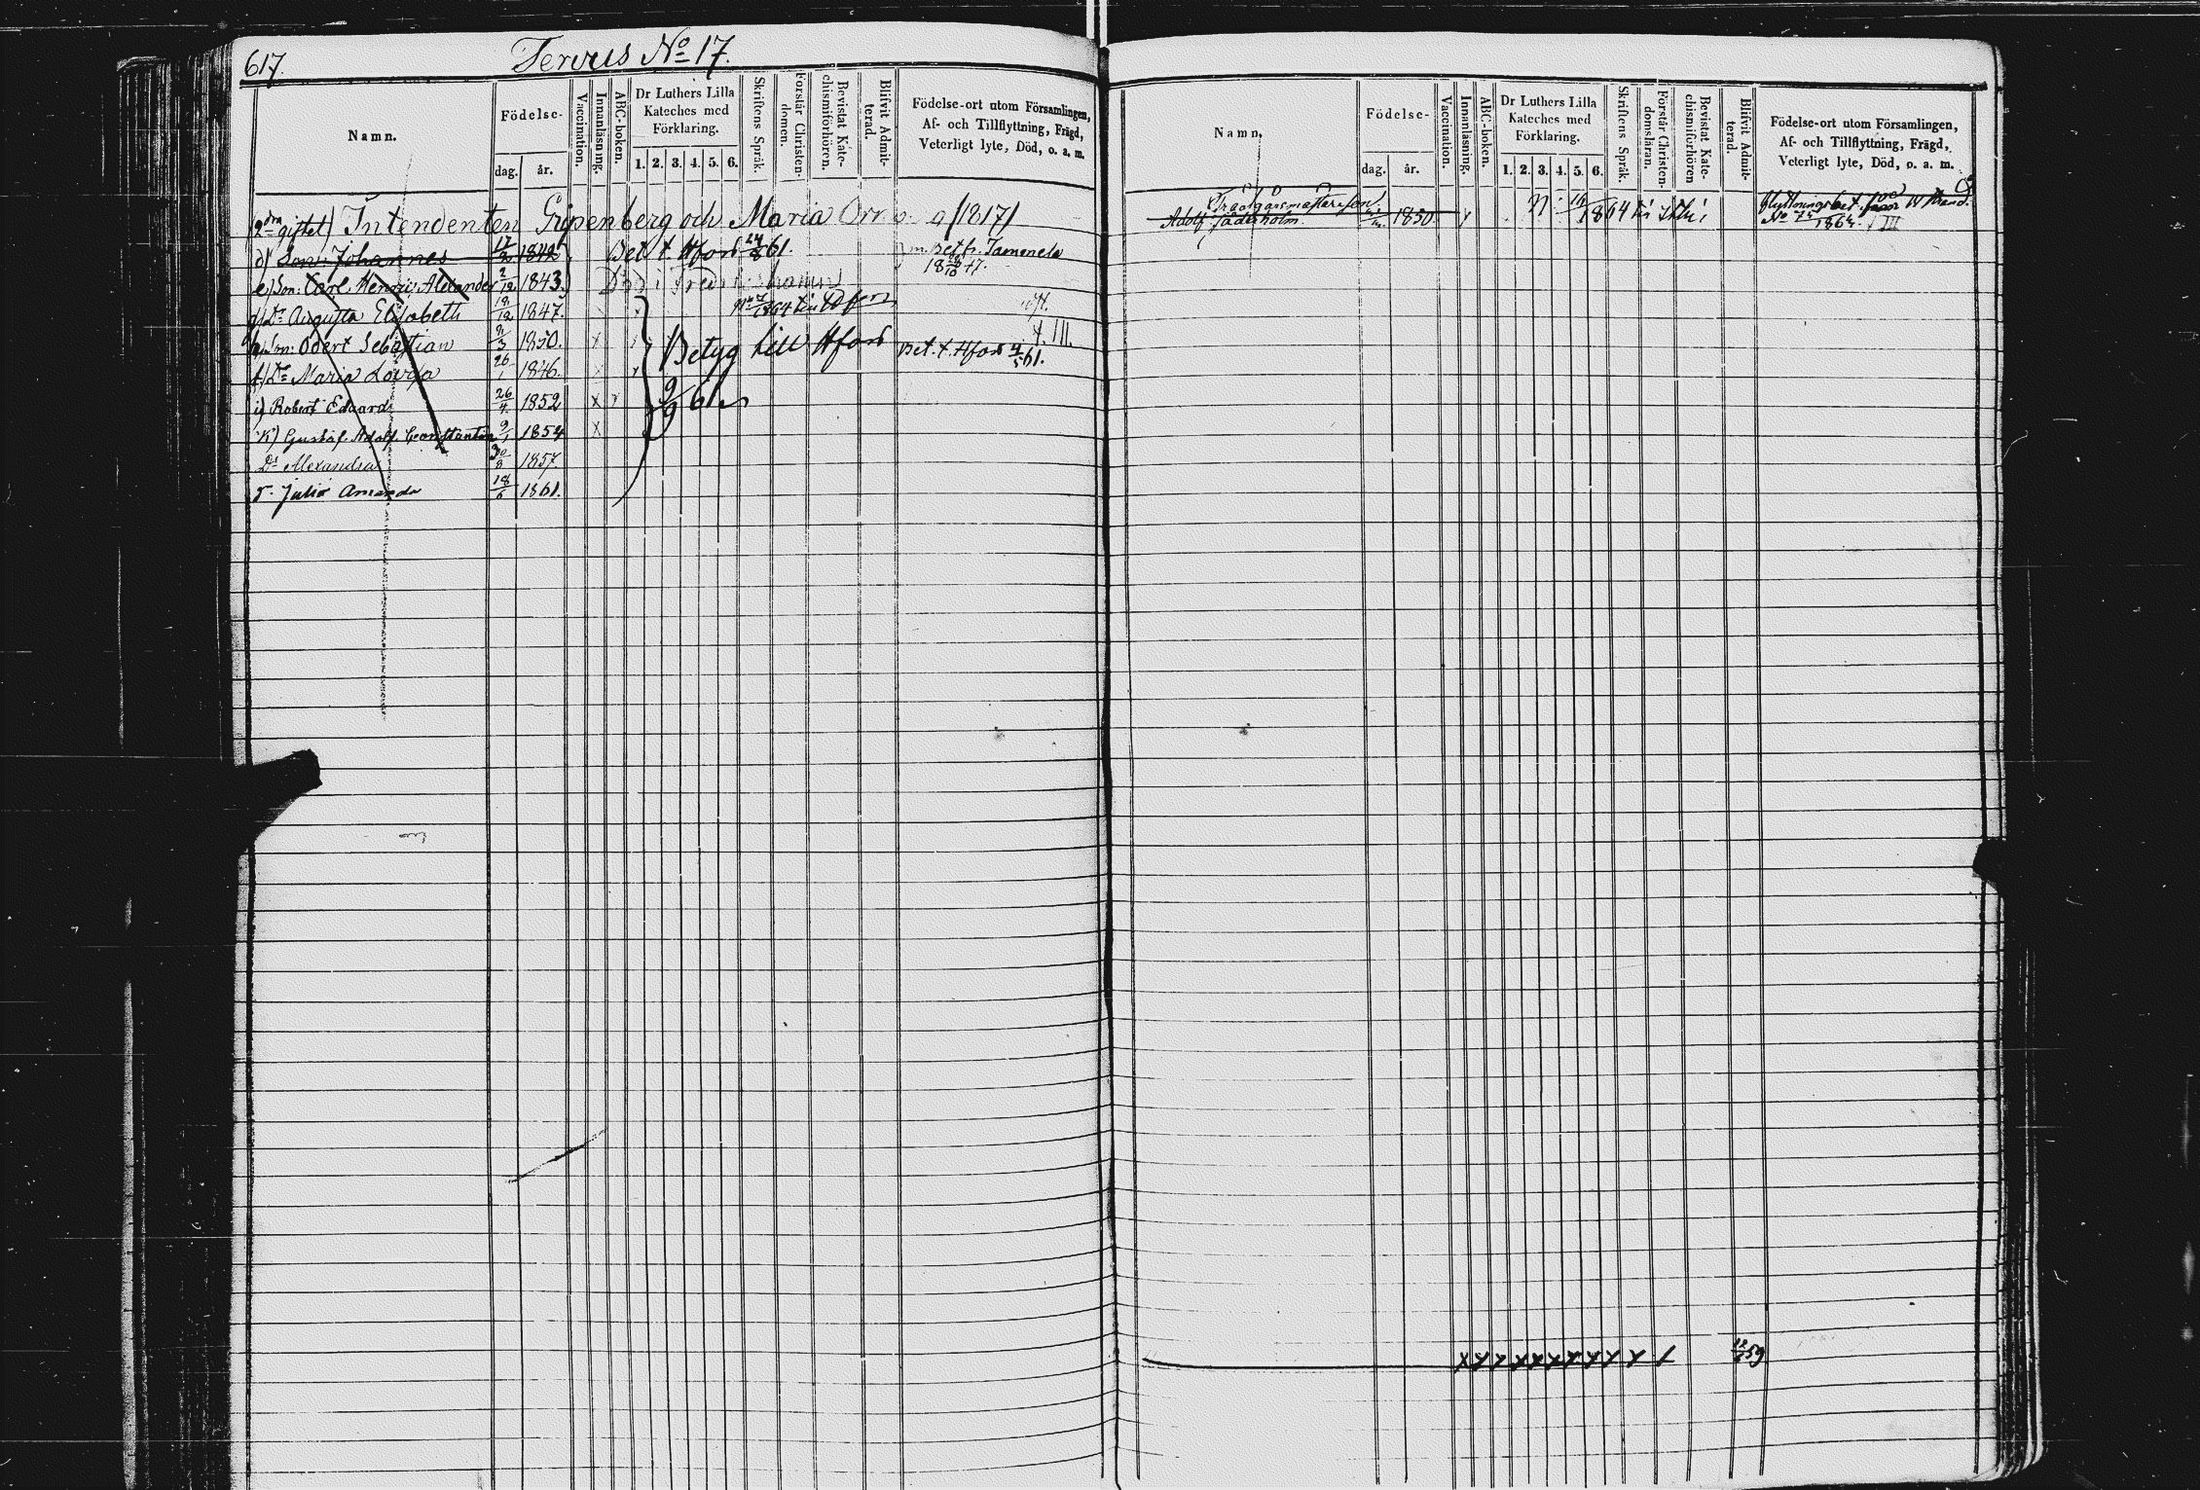 617.
Tervus No 17.
Namn.
Födelse-
dag.
år.
Vaccination.
Innanläsning.
ABC-boken.
Dr Luthers Lilla
Kateches med
Förklaring.
1. 2. 3. 4. 5. 6.
Skriftens Språk.
Förstår Christen-
domen.
Bevistat Kate-
chismiförhören.
Blifvit Admit-
terad.
Födelse-ort utom Församlingen,
Af- och Tillflyttning, Frägd,
Veterligt lyte, Död, o. a. m.
(2dra giftet) Intendenten Gripenberg och Maria /1817/
d) Son: Johannes 1842 Bet t. Hfors 24/8 61.
e) Son: Carl Henric Alexander 2/12 1843. Död i Fredrikshamn
g) Dr Augusta Elisabeth 18/12 1847.
h) Son: Odert Sebastian 1850. Betyg till Hfors Bet. t. Hfors 61.
f) Dr Maria Lovisa 26/1 1846.
i) Robert Eduard 26/4 1852 9/9 61
k) Gustaf Adolf Constantin 9/1 1854
Dr Alexandra 1857
Julia Amanda 18/6 1861.
Namn.
Födelse-
dag.
år.
Vaccination.
Innanläsning.
ABC-boken.
Dr Luthers Lilla
Kateches med
Förklaring.
1. 2. 3. 4. 5. 6.
Skriftens Språk.
Förstår Christen-
domsläran.
Bevistat Kate-
chismiförhören
Blifvit Admit-
terad.
Födelse-ort utom Församlingen,
Af- och Tillflyttning, Frägd,
Veterligt lyte, Död, o. a. m.
Trädgårsmästareson
Adolf Söderholm 1850
59